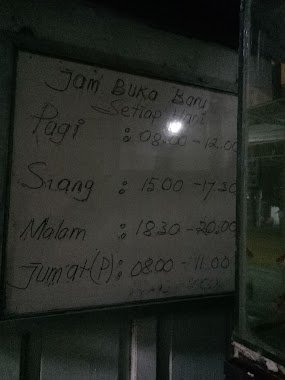 Jam Buka Baru
Setiap Hari
Pagi : 08.00 - 12.00
Siang : 15.00 - 17.30
Malam : 18.30 - 20.00
Jum'at (P) : 08.00 - 11.00